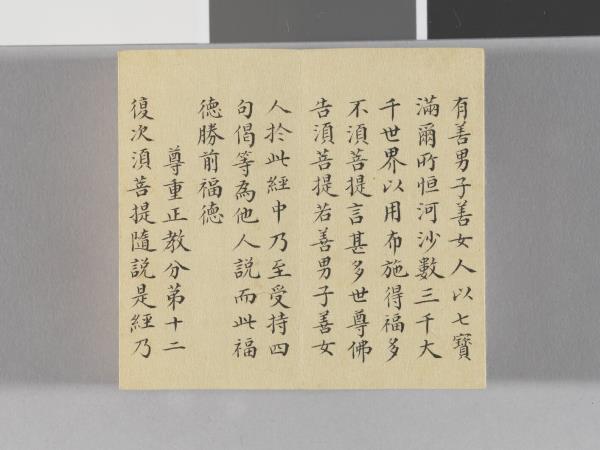 有善男子善女人以七寶
滿爾所恒河沙數三千大
千世界以用布施得福多
不須菩提言甚多世尊佛
告須菩提若善男子善女
人於此經中乃至受持四
句偈等為他人說而此福
德勝前福德
尊重正教分第十二
復次須菩提隨說是經乃